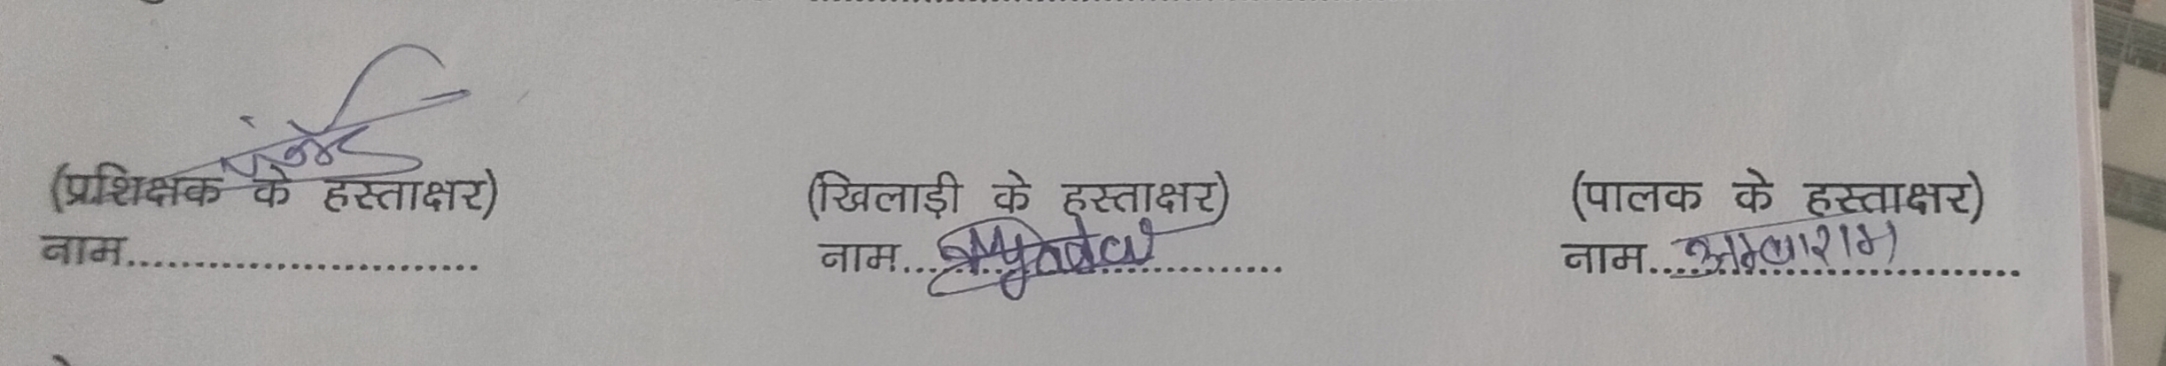 (प्रशिक्षक के हस्ताक्षर) (खिलाड़ी के हस्ताक्षर) (पालक के हस्ताक्षर)
नाम........................... नाम.............................. नाम...अम्बाराम...............